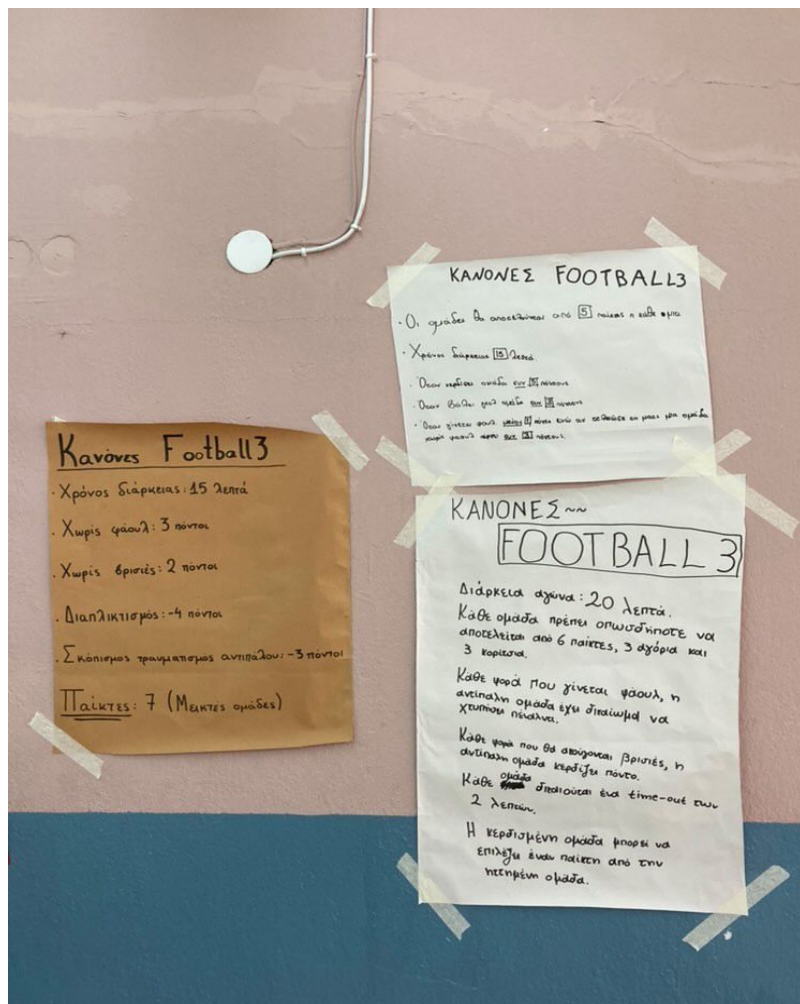 Κανόνες Football3
· Χρόνος διάρκειας: 15 λεπτά
· Χωρίς φάουλ: 3 πόντοι
· Χωρίς βρισιές: 2 πόντοι
· Διαπλικτισμός: -4 πόντοι
· Σκόπισμος τραυματισμός αντιπάλου: -3 πόντοι
Παίκτες: 7 (Μεικτές ομάδες)
ΚΑΝΟΝΕΣ FOOTBALL3
· Οι ομάδες θα αποτελούνται από 5 παίκτες η κάθε μια
· Χρόνος διάρκειας 15 λεπτά
· Όταν κερδίσει ομάδα συν πόντους
· Όταν βάλει γκολ ομάδα συν πόντους
· Όταν γίνεται φαουλ πόντοι ομάδα
χωρίς φαουλ συν πόντους
ΚΑΝΟΝΕΣ~~
FOOTBALL 3
Διάρκεια αγώνα: 20 λεπτά.
Κάθε ομάδα πρέπει οπωσδήποτε να
αποτελείται από 6 παίκτες, 3 αγόρια και
3 κορίτσια.
Κάθε φορά που γίνεται φάουλ, η
αντίπαλη ομάδα έχει δικαίωμα να
χτυπήσει πέναλντι.
Κάθε φορά που θα ακούγονται βρισιές, η
αντίπαλη ομάδα κερδίζει πόντο.
Κάθε ομάδα δικαιούται ένα time-out των
2 λεπτών.
Η κερδισμένη ομάδα μπορεί να
επιλέξει έναν παίκτη από την
ηττημένη ομάδα.